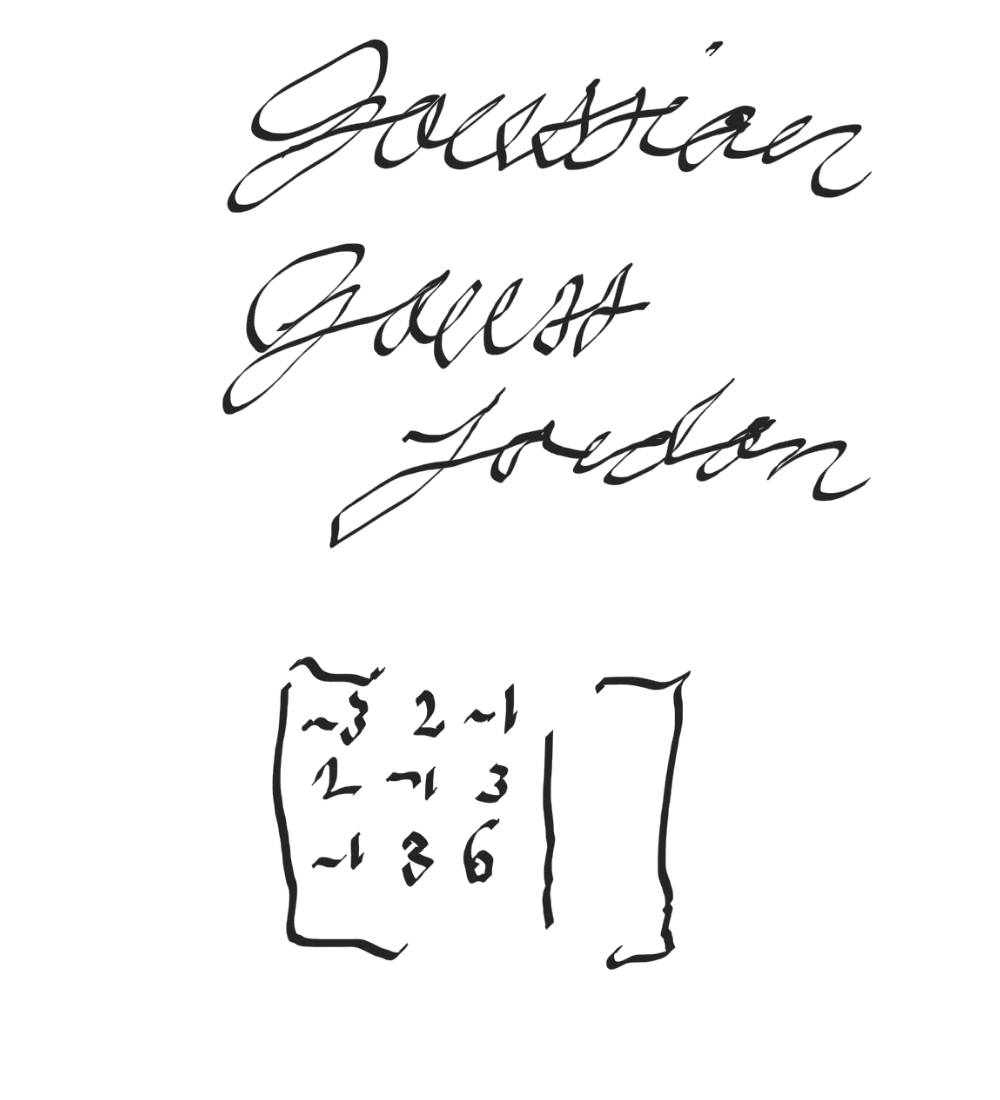 Gaussian
Gauss
Jordan
-3 2 -1
2 -1 3
-1 3 6